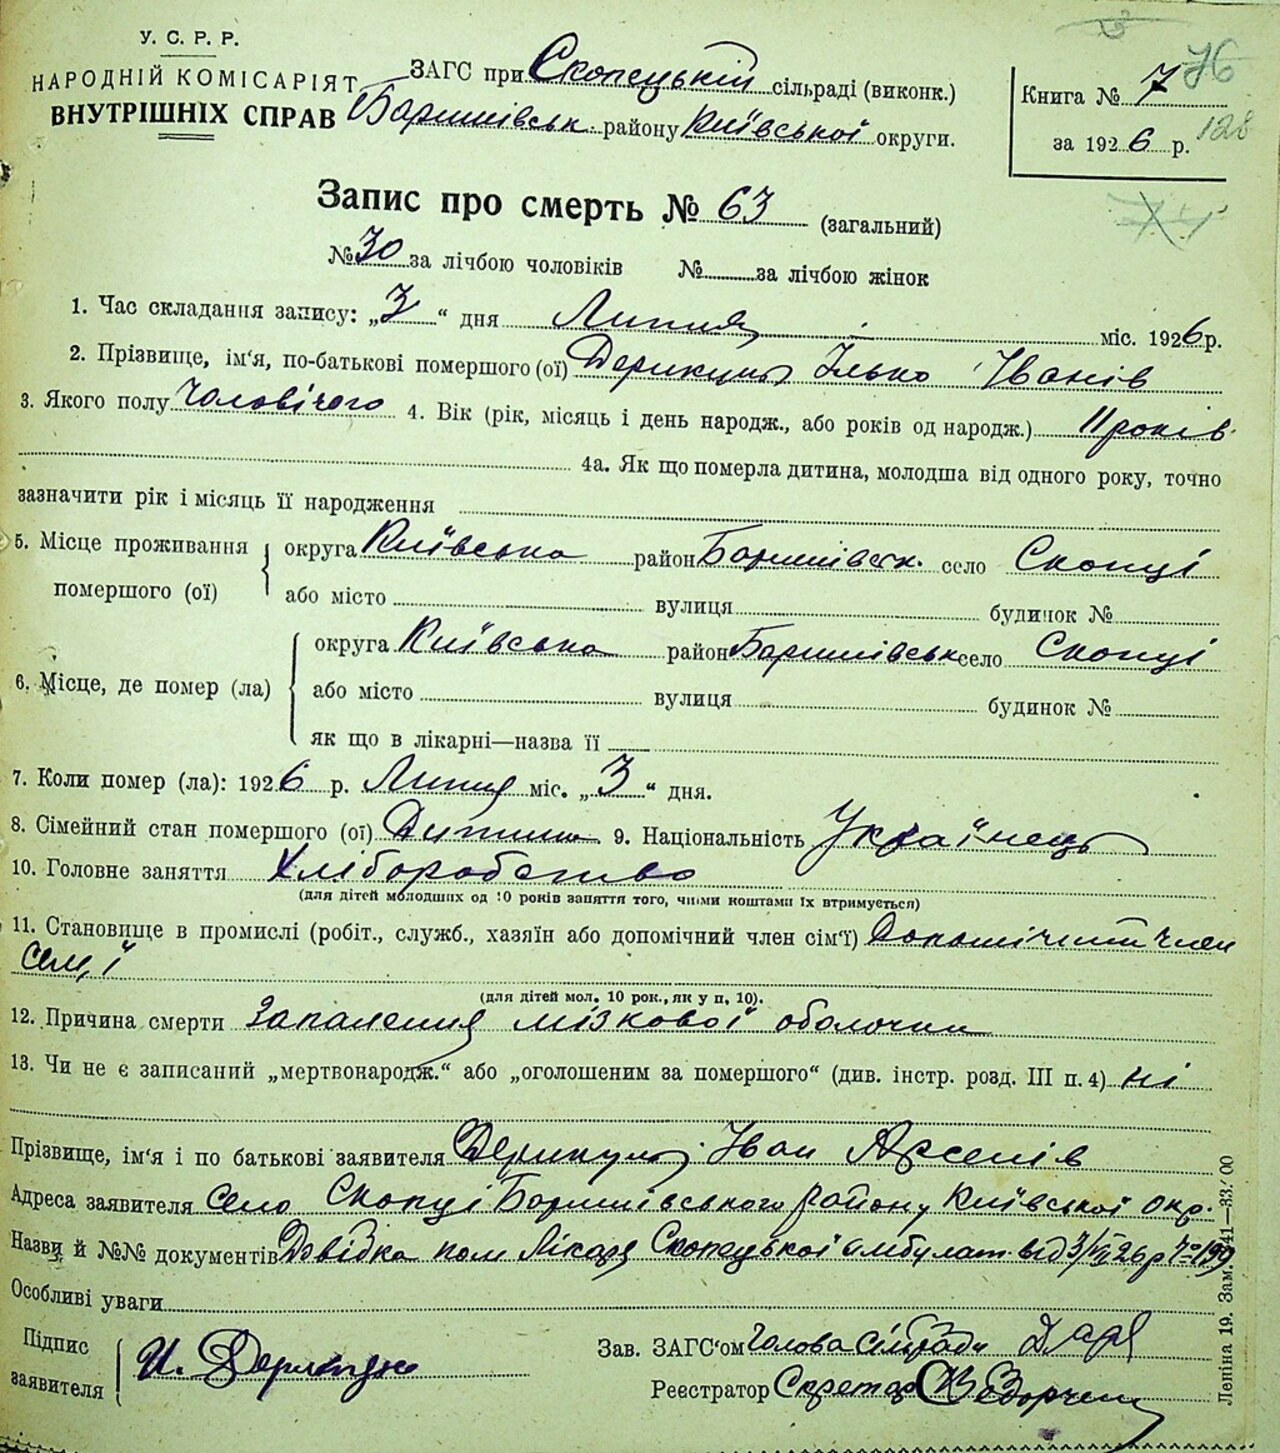 У. С. Р. Р.
НАРОДНІЙ КОМІСАРІЯТ
ВНУТРІШНІХ СПРАВ
ЗАГС при Скопецькій сільраді (виконк.)
Баришівськ. району Київської округи.
Книга № 7 76
за 1926 р. 128
Запис про смерть № 63 (загальний)
№ 30 за лічбою чоловіків № за лічбою жінок
1. Час складання запису: „3“ дня Липня міс. 1926 р.
2. Прізвище, ім‘я, по-батькові помершого (ої) Дерикуца Ілько Іванів
3. Якого полу Чоловічого 4. Вік (рік, місяць і день народж., або років од народж.) 11 років
4а. Як що померла дитина, молодша від одного року, точно
зазначити рік і місяць її народження
5. Місце проживання помершого (ої) округа Київська район Баришівськ. село Скопці
або місто вулиця будинок №
6. Місце, де помер (ла) округа Київська район Баришівськ село Скопці
або місто вулиця будинок №
як що в лікарні—назва її
7. Коли помер (ла): 1926 р. Липня міс. „3“ дня.
8. Сімейний стан помершого (ої) Дитина 9. Національність Українець
10. Головне заняття Хліборобство
(для дітей молодших од 10 років заняття того, чиїми коштами їх втримується)
11. Становище в промислі (робіт., служб., хазяїн або допомічний член сім‘ї) Допомічний член
сем,ї
(для дітей мол. 10 рок., як у п. 10).
12. Причина смерти Запалення мізкової оболочки
13. Чи не є записаний „мертвонародж.“ або „оголошеним за помершого“ (див. інстр. розд. III п. 4) ні
Прізвище, ім‘я і по батькові заявителя Дерикуца Іван Арсенів
Адреса заявителя Село Скопці Баришівського району Київської окр.
Назви й №№ документів Довідка пом Лікаря Скопецької амбулат. від 3/VII 26 р № 199
Особливі уваги
Підпис заявителя И.
Зав. ЗАГС‘ом Голова Сільради
Реєстратор Секретар
Леніна 19. Зам. 341—33.000